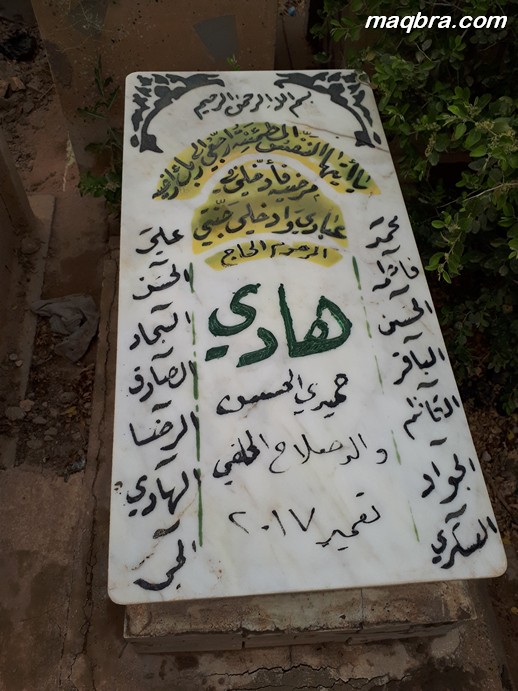 maqbra.com
بسم الله الرحمن الرحيم
يا أيتها النفس المطمئنة ارجعي إلى ربك راضية
مرضية فأدخلي في
عبادي وادخلي جنتي
المرحوم الحاج
هادي
حميدي الحسين
والد صلاح الخلفي
تعمير ٢٠١٧
محمد
فاطمة
الحسن
الباقر
الكاظم
الجواد
العسكري
علي
الحسين
السجاد
الصادق
الرضا
الهادي